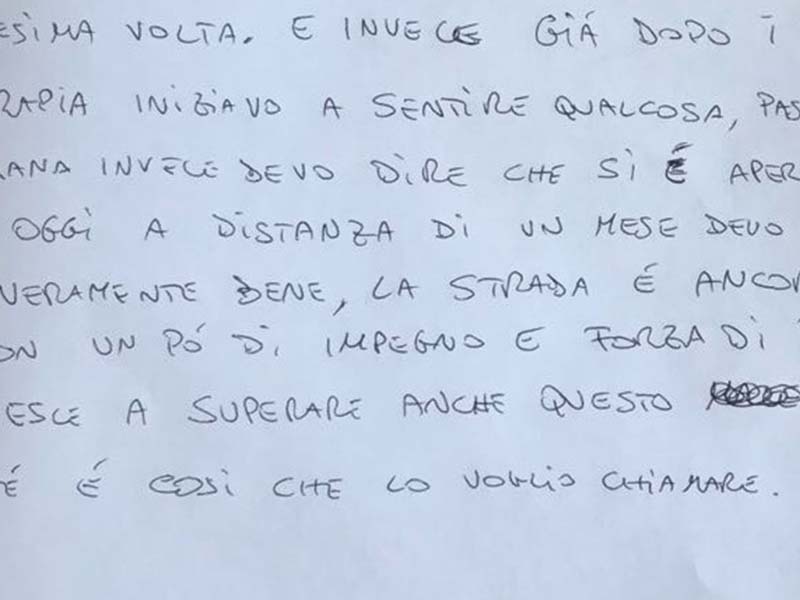 ESIMA VOLTA. E INVECE GIÁ DOPO I
RAPIA INIZIAVO A SENTIRE QUALCOSA, PAS
ANA INVECE DEVO DIRE CHE SI É APER
OGGI A DISTANZA DI UN MESE DEVO
VERAMENTE BENE, LA STRADA É ANCOR
ON UN PÓ DI IMPEGNO E FORZA DI
ESCE A SUPERARE ANCHE QUESTO
É É COSÌ CHE LO VOGLIO CHIAMARE.